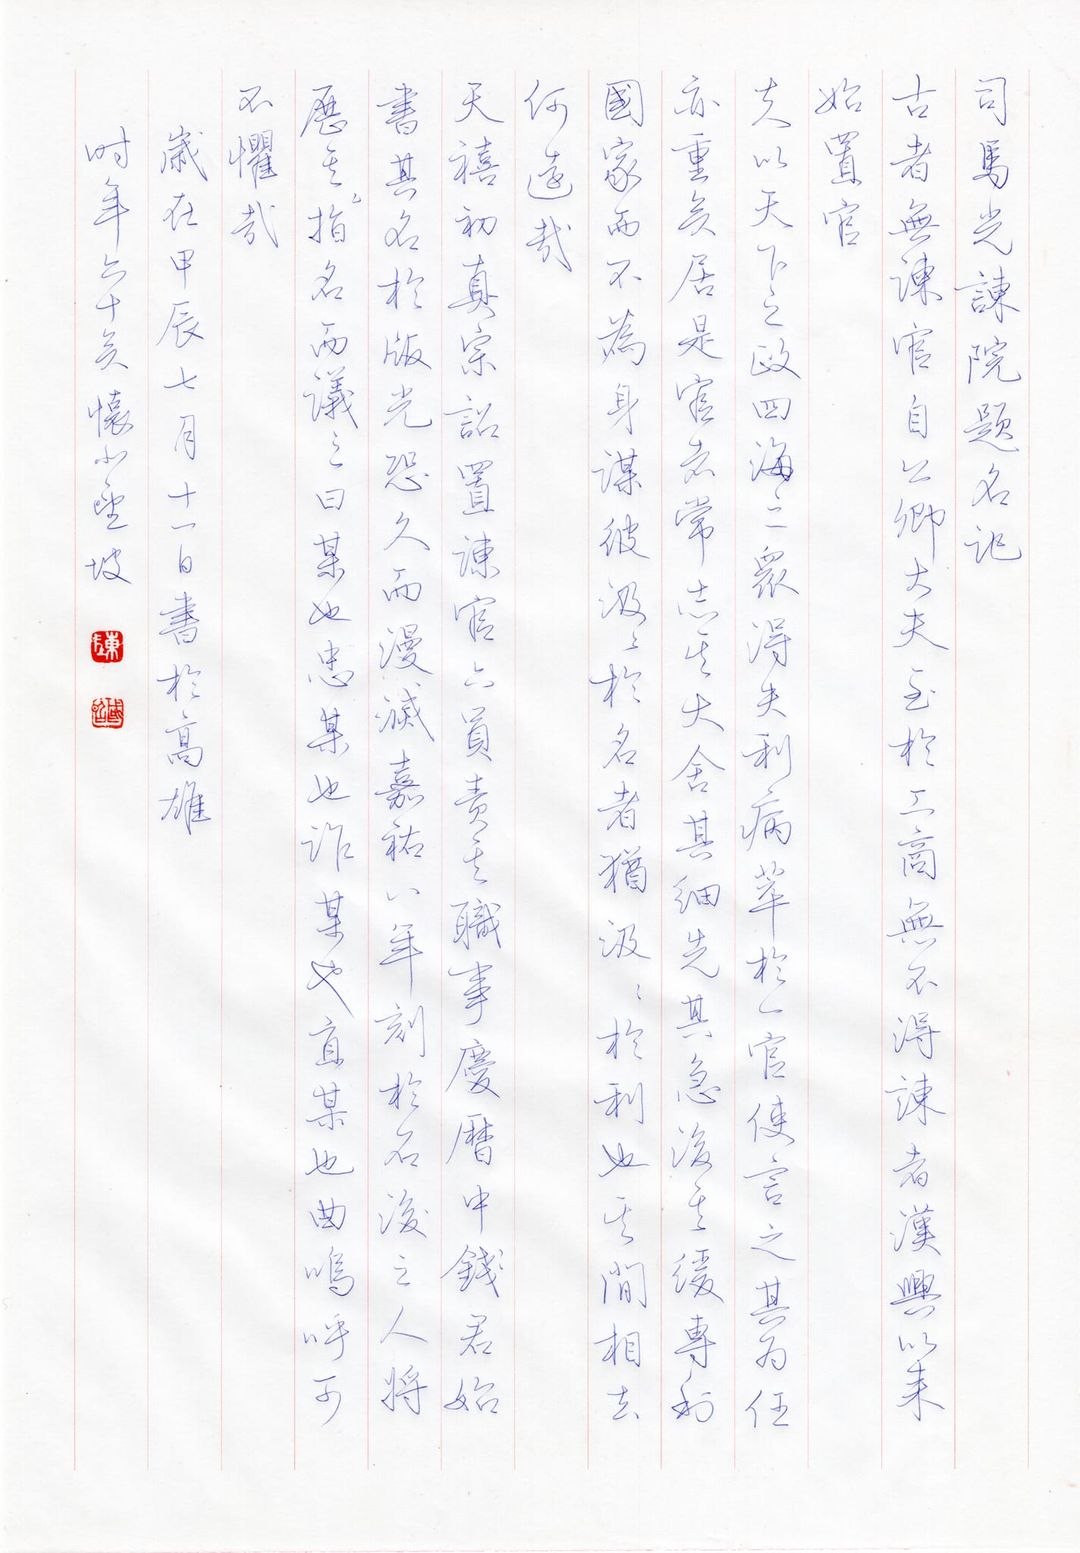 司馬光諫院題名記
古者無諫官自公卿大夫至於工商無不得諫者漢興以来
始置官
夫以天下之政四海之衆得失利病萃於一官使言之其为任
亦重矣居是官者常志其大舍其细先其急後其緩專利
國家而不為身謀彼汲〻於名者猶汲〻於利也其間相去
何遠哉
天禧初真宗詔置諫官六員責其職事慶曆中錢君始
書其名於版光恐久而漫滅嘉祐八年刻於石後之人将
歷〻指其名而議之曰某也忠某也詐某也直某也曲嗚呼可
不懼哉
歲在甲辰七月十一日書於高雄
时年六十矣懷小坡
陳
國